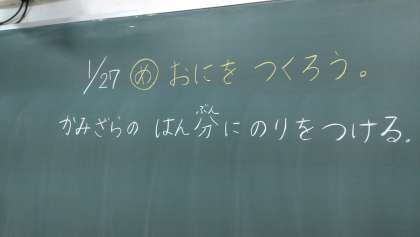 1/27 め おにを つくろう。
かみざらの はん分にのりをつける。